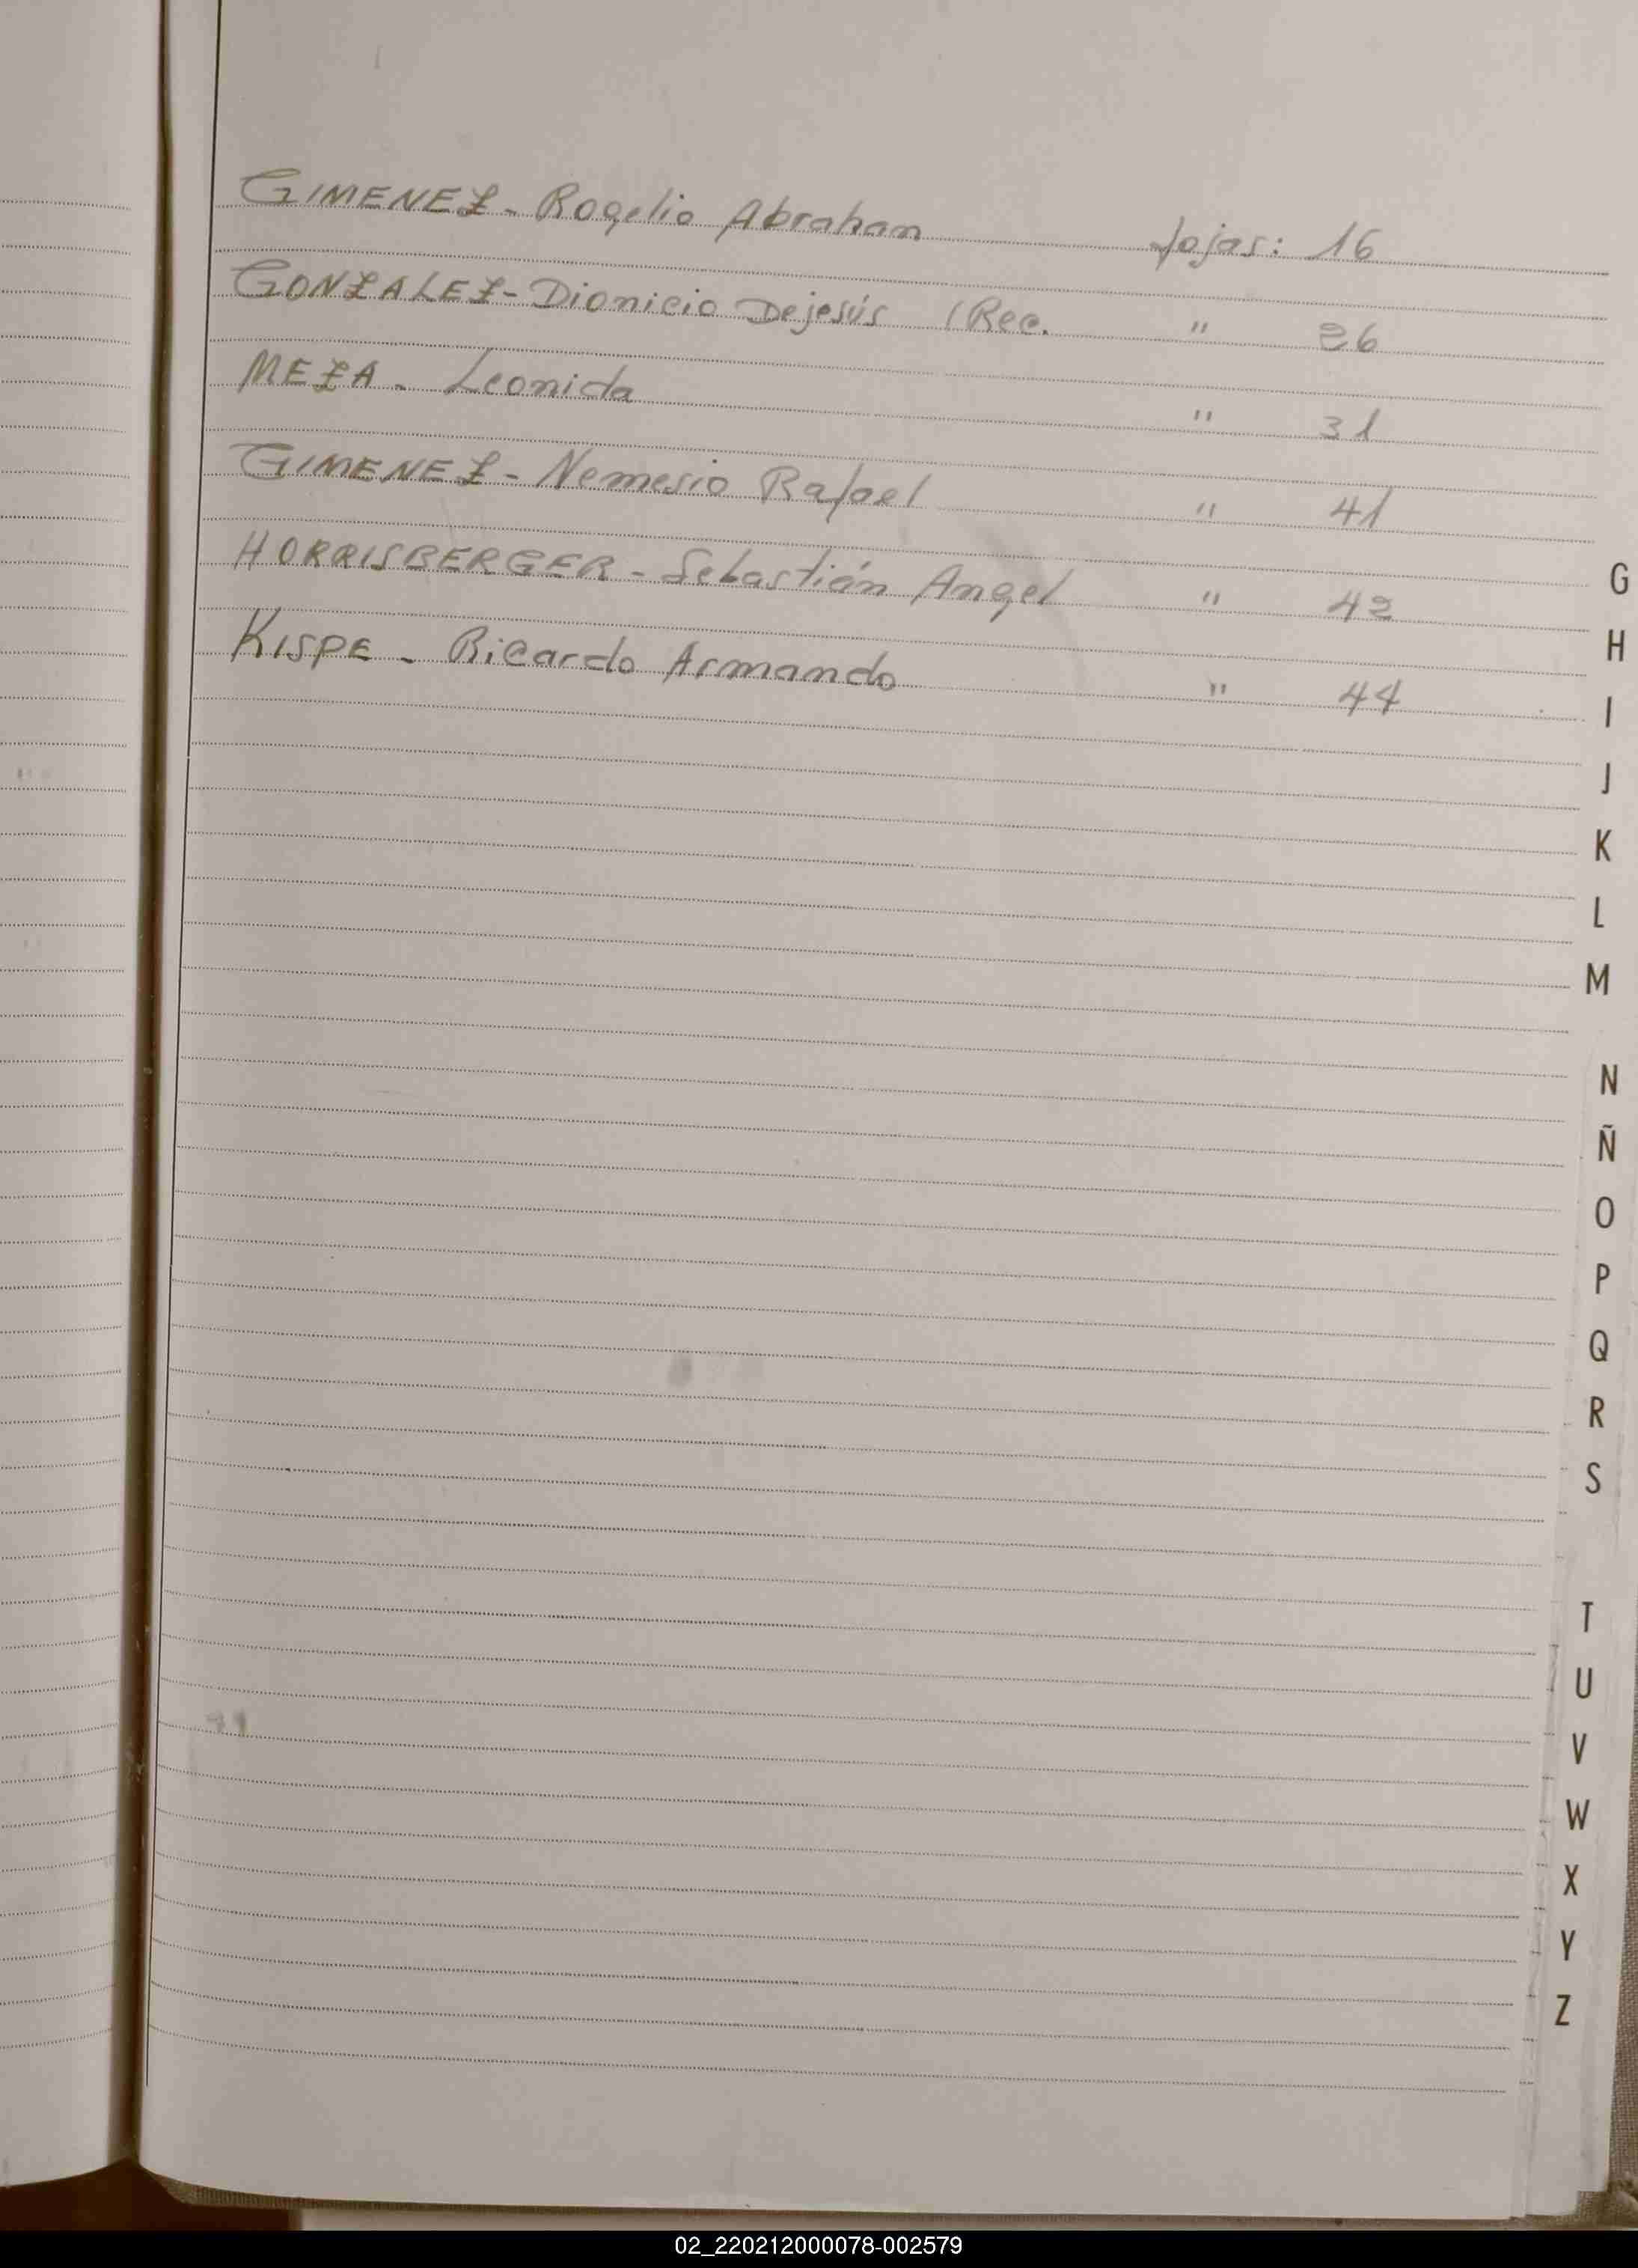 GIMENEZ - Rogelio Abrahan fojas: 16
GONZALEZ - Dionicio Dejesús (Rec. " 26
MEZA - Leonida " 31
GIMENEZ - Nemesio Rafael " 41
HORRISBERGER - Sebastián Angel " 42
KISPE - Ricardo Armando " 44
G
H
I
J
K
L
M
N
Ñ
O
P
Q
R
S
T
U
V
W
X
Y
Z
02_220212000078-002579